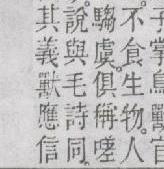 子掌鳥獸官
不食生物。人
騶虞俱稱嗟
說與毛詩同。
其義獸應信